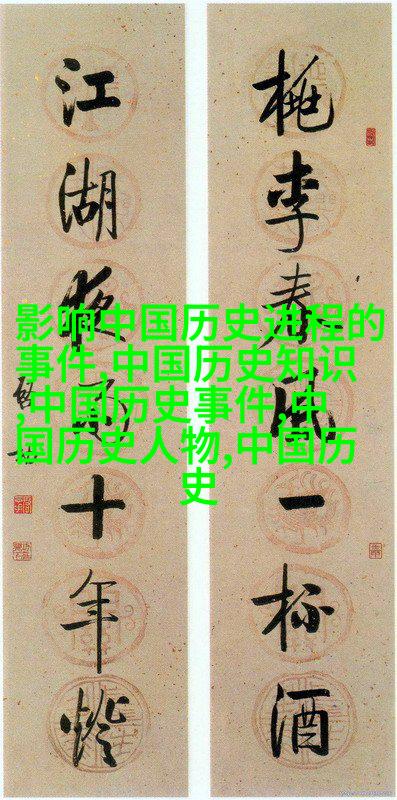 桃李春風一杯酒
江湖夜雨十年燈
影响中国历史进程的
事件,中国历史知识
,中国历史事件,中
国历史人物,中国历
史